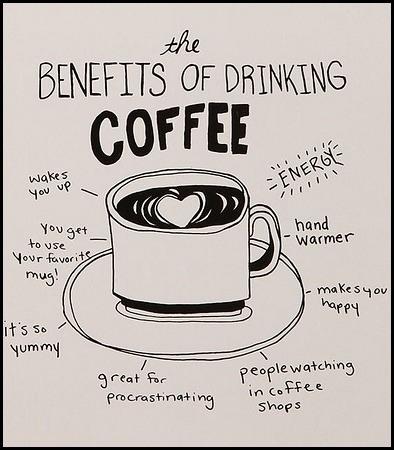 the
BENEFITS OF DRINKING
COFFEE
ENERGY
wakes
you up
hand
warmer
you get
to use
your favorite
mug!
makes you
happy
it's so
yummy
great for
procrastinating
people watching
in coffee
shops